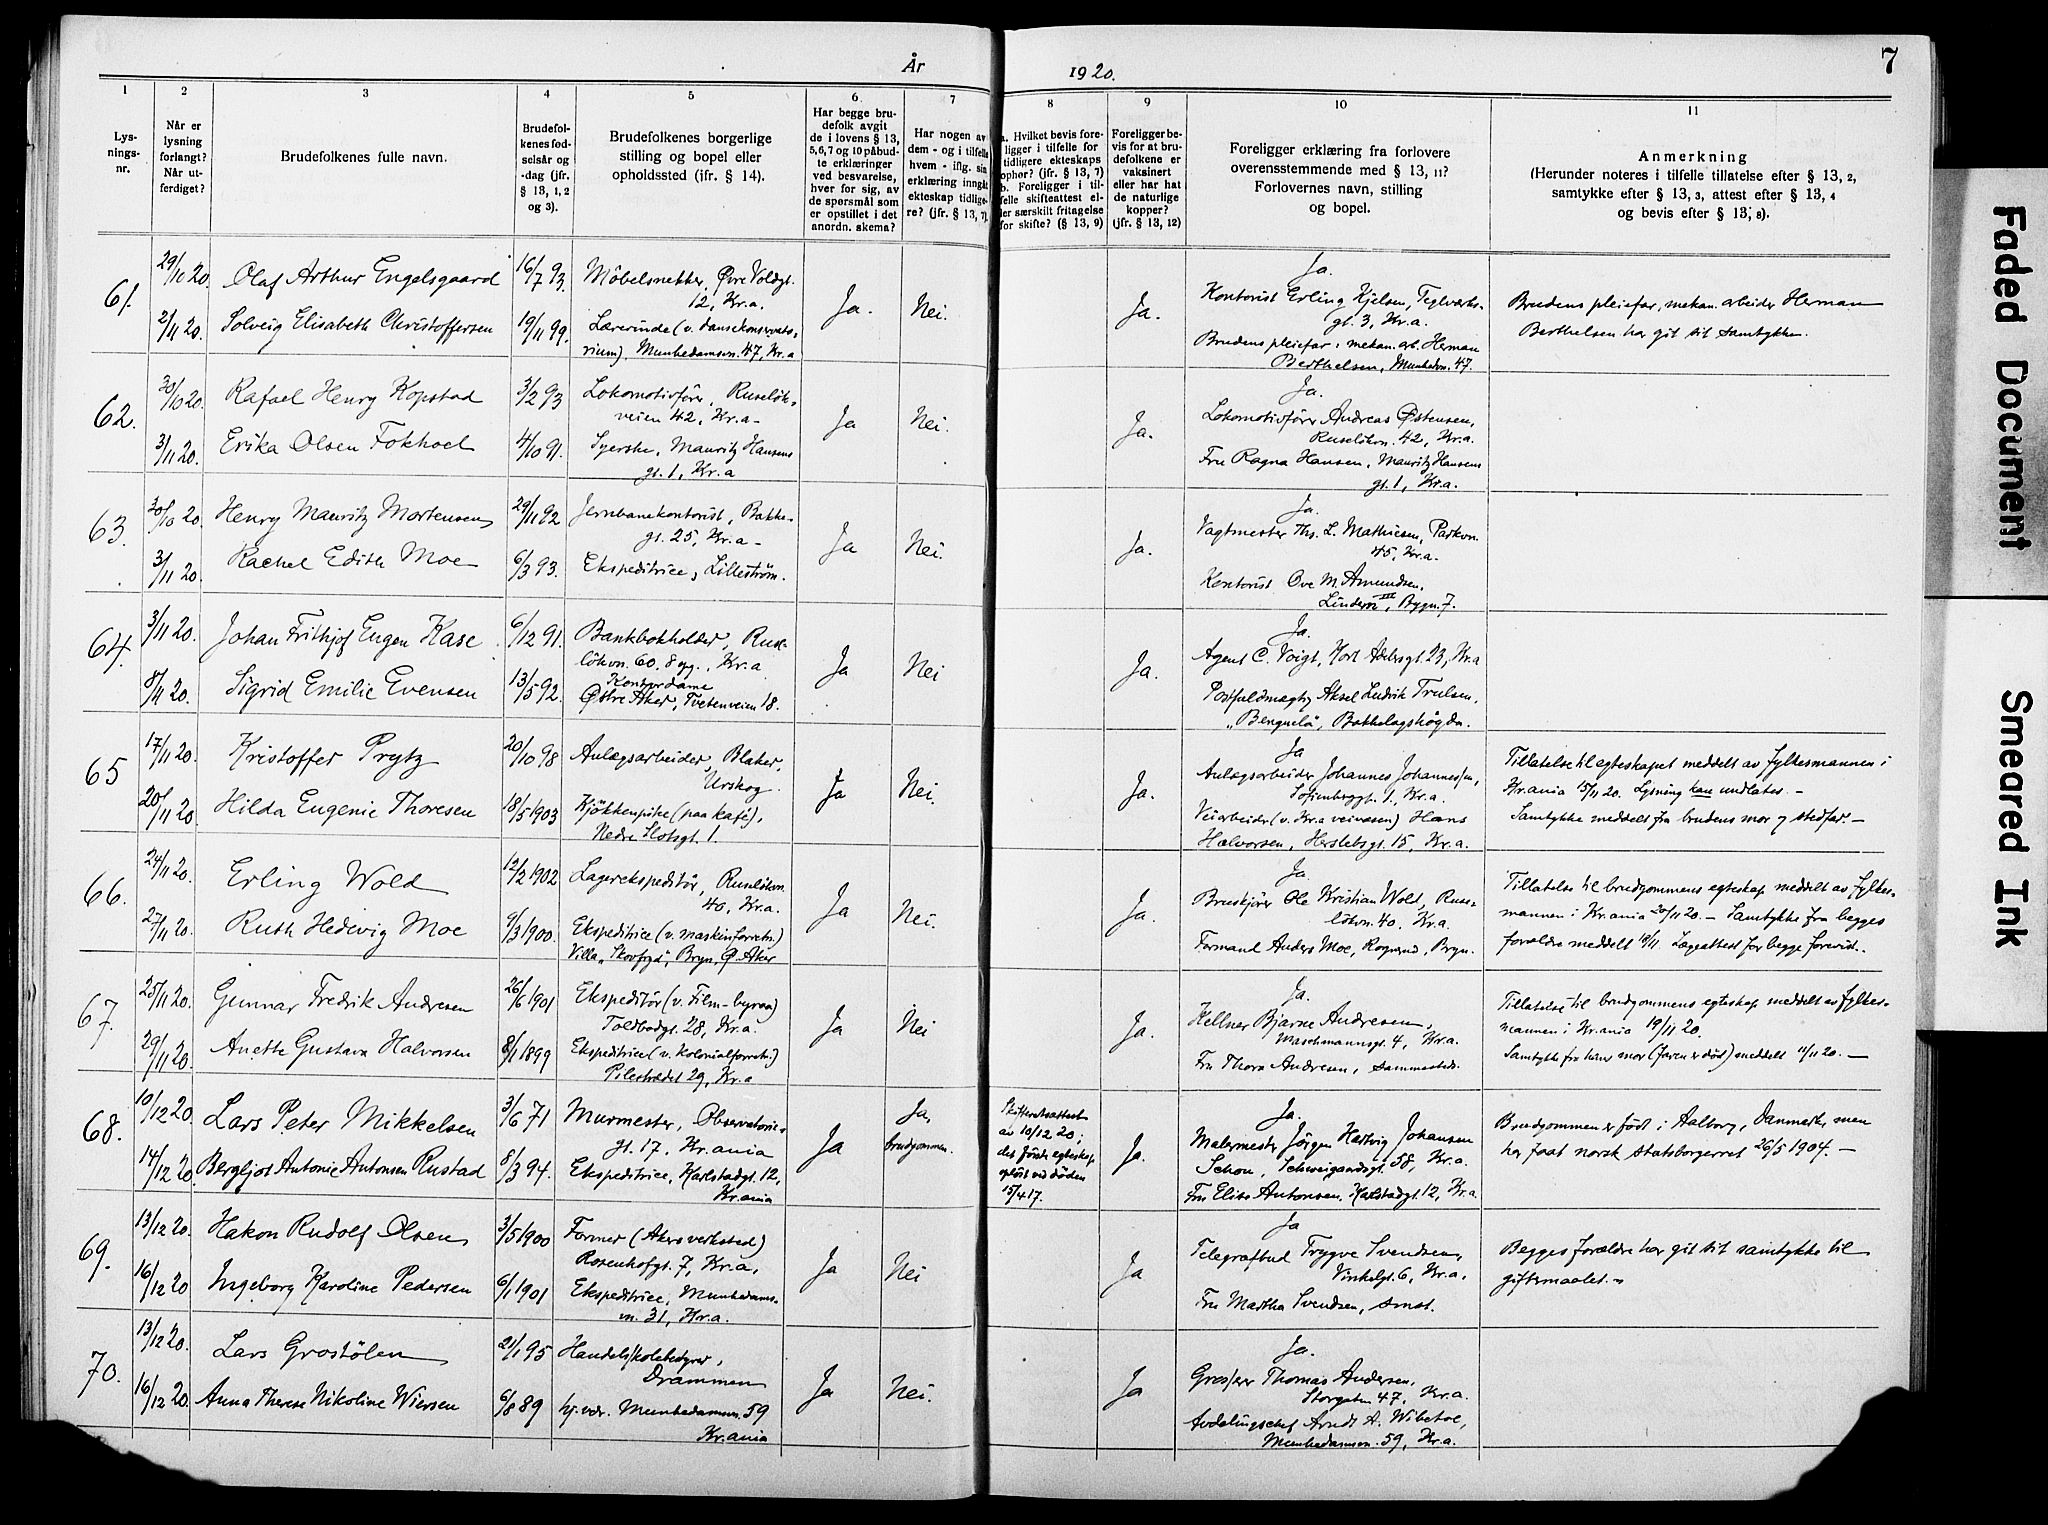 År
1920.
7
1
2
3
4
5
6
7
8
9
10
11
Lys-
nings-
nr.
Når er
lysning
forlangt?
Når ut-
ferdiget?
Brudefolkenes fulle navn.
Brudefol-
kenes fød-
selsår og
-dag (jfr.
§ 13, 1, 2
og 3).
Brudefolkenes borgerlige
stilling og bopel eller
opholdssted (jfr. § 14).
Har begge bru-
defolk avgit
de i lovens § 13,
5,6,7 og 10 påbud-
te erklæringer
ved besvarelse,
hver for sig, av
de spørsmål som
er opstillet i det
anordn. skema?
Har nogen av
dem - og i tilfelle
hvem - iflg. sin
erklæring inngåt
ekteskap tidlige-
re? (jfr. § 13, 7).
a. Hvilket bevis fore-
ligger i tilfelle for
tidligere ekteskaps
ophør? (jfr. § 13, 7)
b. Foreligger i til-
felle skifteattest el-
ler særskilt fritagelse
for skifte? (§ 13, 9)
Foreligger be-
vis for at bru-
defolkene er
vaksinert
eller har hat
de naturlige
kopper?
(jfr. § 13, 12)
Foreligger erklæring fra forlovere
overensstemmende med § 13, 11?
Forlovernes navn, stilling
og bopel.
Anmerkning
(Herunder noteres i tilfelle tillatelse efter § 13, 2,
samtykke efter § 13, 3, attest efter § 13, 4
og bevis efter § 13, 8).
61.
29/10 20.
2/11 20.
Olaf Arthur Engelsgaard
Solveig Elisabeth Christoffersen
16/7 93.
19/11 99.
Möbelsnekker, Øvre Voldgt.
12, Kr.a.
Lærerinde (v. dansekonservato-
rium), Munkedamsvn. 47, Kr.a
Ja.
Nei.
Ja.
Ja.
Kontorist Erling Kjelsen, Teglverks-
gt. 3, Kr.a.
Brudens pleiefar: mekan. arb. Herman
Berthelsen, Munkedvn. 47.
Brudens pleiefar, mekan. arbeider Herman
Berthelsen har git sit samtykke.
62.
30/10 20.
3/11 20.
Rafael Henry Kopstad
Erika Olsen Fokhoel
3/2 93
4/10 91.
Lokomotivfører, Ruseløk-
veien 42, Kr.a-
Syerske, Mauritz Hansens
gt. 1, Kr.a
Ja
Nei.
Ja.
Ja.
Lokomotivfører Andreas Østensen,
Ruseløkvn. 42, Kr.a.
Fru Ragna Hansen, Mauritz Hansens
gt. 1, Kr.a.
63.
30/10 20.
3/11 20.
Henry Mauritz Mortensen
Rachel Edith Moe
29/11 92
6/3 93.
Jernbanekontorist, Bakke-
gt. 25, Kr.a-
Ekspeditrice, Lillestrøm.
Ja
Nei.
Ja.
Ja.
Vagtmester Ths. L. Mathiesen, Parkvn.
45, Kr.a.
Kontorist Ove M. Amundsen,
Lindern III, Bygn. 7.
64.
3/11 20.
8/11 20.
Johan Frithjof Eugen Kase
Sigrid Emilie Evensen
6/12 91.
13/5 92.
Bankbokholder, Ruse-
løkvn. 60, 8 og., Kr.a
Kontordame
Østre Aker, Tvetenveien 18.
Ja
Nei
Ja.
Ja.
Agent C. Voigt, Kort Adelersgt. 23, Kr.a
Postfuldmægtig Aksel Ludvik Trulsen,
"Benguela", Bakkelagshøgda.
65
17/11 20.
20/11 20.
Kristoffer Prytz
Hilda Eugenie Thoresen
20/10 98
18/5 1903
Anlægsarbeider, Blaker,
Urskog.
Kjøkkenpike (paa kafé),
Nedre Slotsgt. 1.
Ja
Nei.
Ja.
Ja
Anlægsarbeider Johannes Johannesen,
Sofienberggt. 1, Kr.a.
Veiarbeider (v. Kr.a veivæsen) Hans
Halvorsen, Herslebsgt. 15, Kr.a.
Tillatelse til egteskapet meddelt av fylkesmannen i
Kr.ania 15/11 20. Lysning kan undlates. -
Samtykke meddelt fra brudens mor og stedfar. -
66.
24/11 20.
27/11 20.
Erling Wold
Ruth Hedevig Moe
12/2 1902
9/3 1900.
Lagerekspeditør, Ruseløkvn.
40, Kr.a.
Ekspeditrice (v. maskinforretn.)
Villa "Skovfryd", Bryn, Ø. Aker
Ja
Nei.
Ja.
Ja.
Bruskjører Ole Kristian Wold, Ruse-
løkvn. 40. Kr.a.
Formand Anders Moe, Rognerud, Bryn.
Tillatelse til brudgommens egteskap meddelt av fylkes-
mannen i Kr.ania 20/11 20. - Samtykke fra begges
forældre meddelt 19/11. Lægeattest for begge forevist.
67.
25/11 20.
29/11 20.
Gunnar Fredrik Andresen
Anette Gustava Halvorsen
26/6 1901
8/1 1899
Ekspeditør (v. Film-byraa)
Toldbodgt. 28, Kr.a.
Ekspeditrice (v. Kolonialforretn.)
Pilestrædet 29, Kr.a
Ja
Nei
Ja.
Ja.
Kellner Bjarne Andresen,
Maschmannsgt. 4, Kr.a.
Fru Thora Andresen, sammesteds.
Tillatelse til brudgommens egteskap meddelt av fylkes-
mannen i Kr.ania 19/11 20.
Samtykke fra hans mor (faren er død) meddelt 11/11 20. -
68.
10/12 20.
14/12 20.
Lars Peter Mikkelsen
Bergljot Antonie Antonsen Rustad
3/6 71
8/3 94.
Murmester, Observatorie-
gt. 17, Kr.ania
Ekspeditrice, Karlstadgt. 12,
Kr.ania
Ja
Ja,
brudgommen.
Skifteretsattest
av 10/12 20;
det første egteskap
opløst ved døden
15/4 17.
Ja.
Ja.
Malermester Jörgen Hartvig Johansen
Schou, Schweigaardsgt. 58, Kr.a.
Fru Elise Antonsen, Karlstadgt. 12, Kr.a.
Brudgommen er født i Aalborg, Danmark, men
har faat norsk statsborgerret 26/5 1904. -
69.
13/12 20.
16/12 20
Hakon Rudolf Olsen
Ingeborg Karoline Pedersen
3/5 1900
6/1 1901
Former (Akers verksted)
Rosenhofgt. 7, Kr.a.
Ekspeditrice, Munkedams-
vn. 31, Kr.a.
Ja
Nei
Ja
Ja
Telegrafbud Trygve Svendsen,
Vinkelgt. 6, Kr.a.
Fru Martha Svendsen, smst.
Begges forældre har git sit samtykke til
giftermaalet. -
70.
13/12 20.
16/12 20.
Lars Grostölen
Anna Therese Nikoline Wiersen
21/1 95
6/8 89
Handelsskolebestyrer,
Drammen
hj.vær. Munkedamsvn. 59
Kr.ania
Ja
Nei.
Ja
Ja.
Grosserer Thomas Andersen,
Storgaten 47, Kr.a.
Avdelingschef Arndt A. Wibetoe,
Munkedamsvn. 59, Kr.a.
Faded Document
Smeared Ink